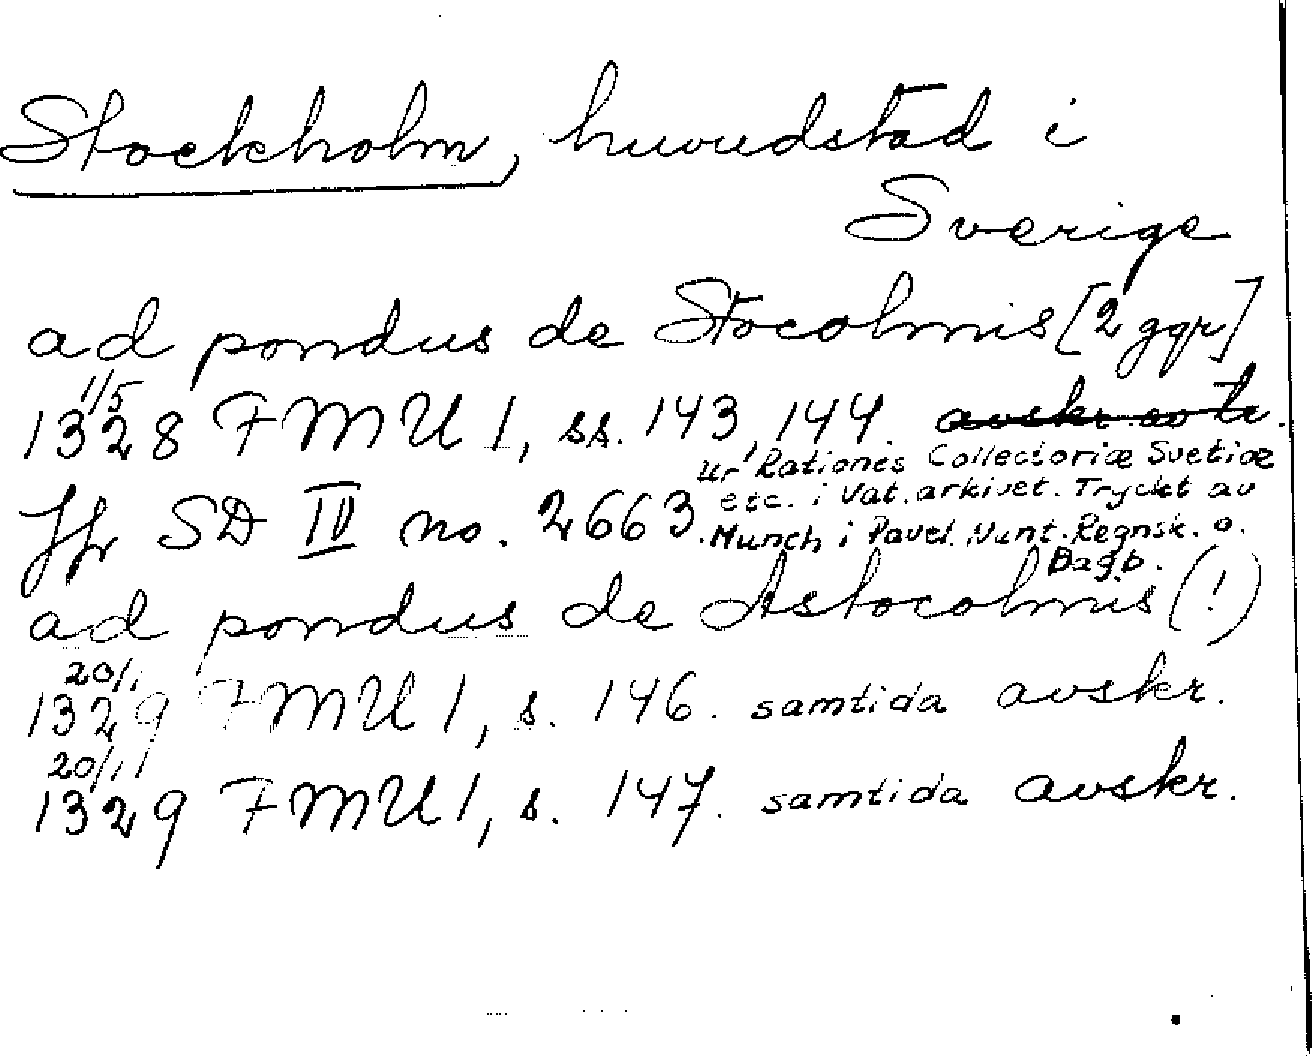 Stockholm, huvudstad i
Sverige
ad pondus de Stocolmis [2 ggr]
1/5
1328 FMU 1, ss. 143, 144. avskr. av
ur Rationes Collectoriæ Svetiæ
etc. i Vat. arkivet. Tryckt av
Jfr SD IV no. 2663.
Munch i Pavel. Nunt. Regnsk. o.
Dagb.
ad pondus de Astocolmis (!)
20/1
1329 FMU 1, s. 146. samtida avskr.
20/11
1329 FMU 1, s. 147. samtida avskr.